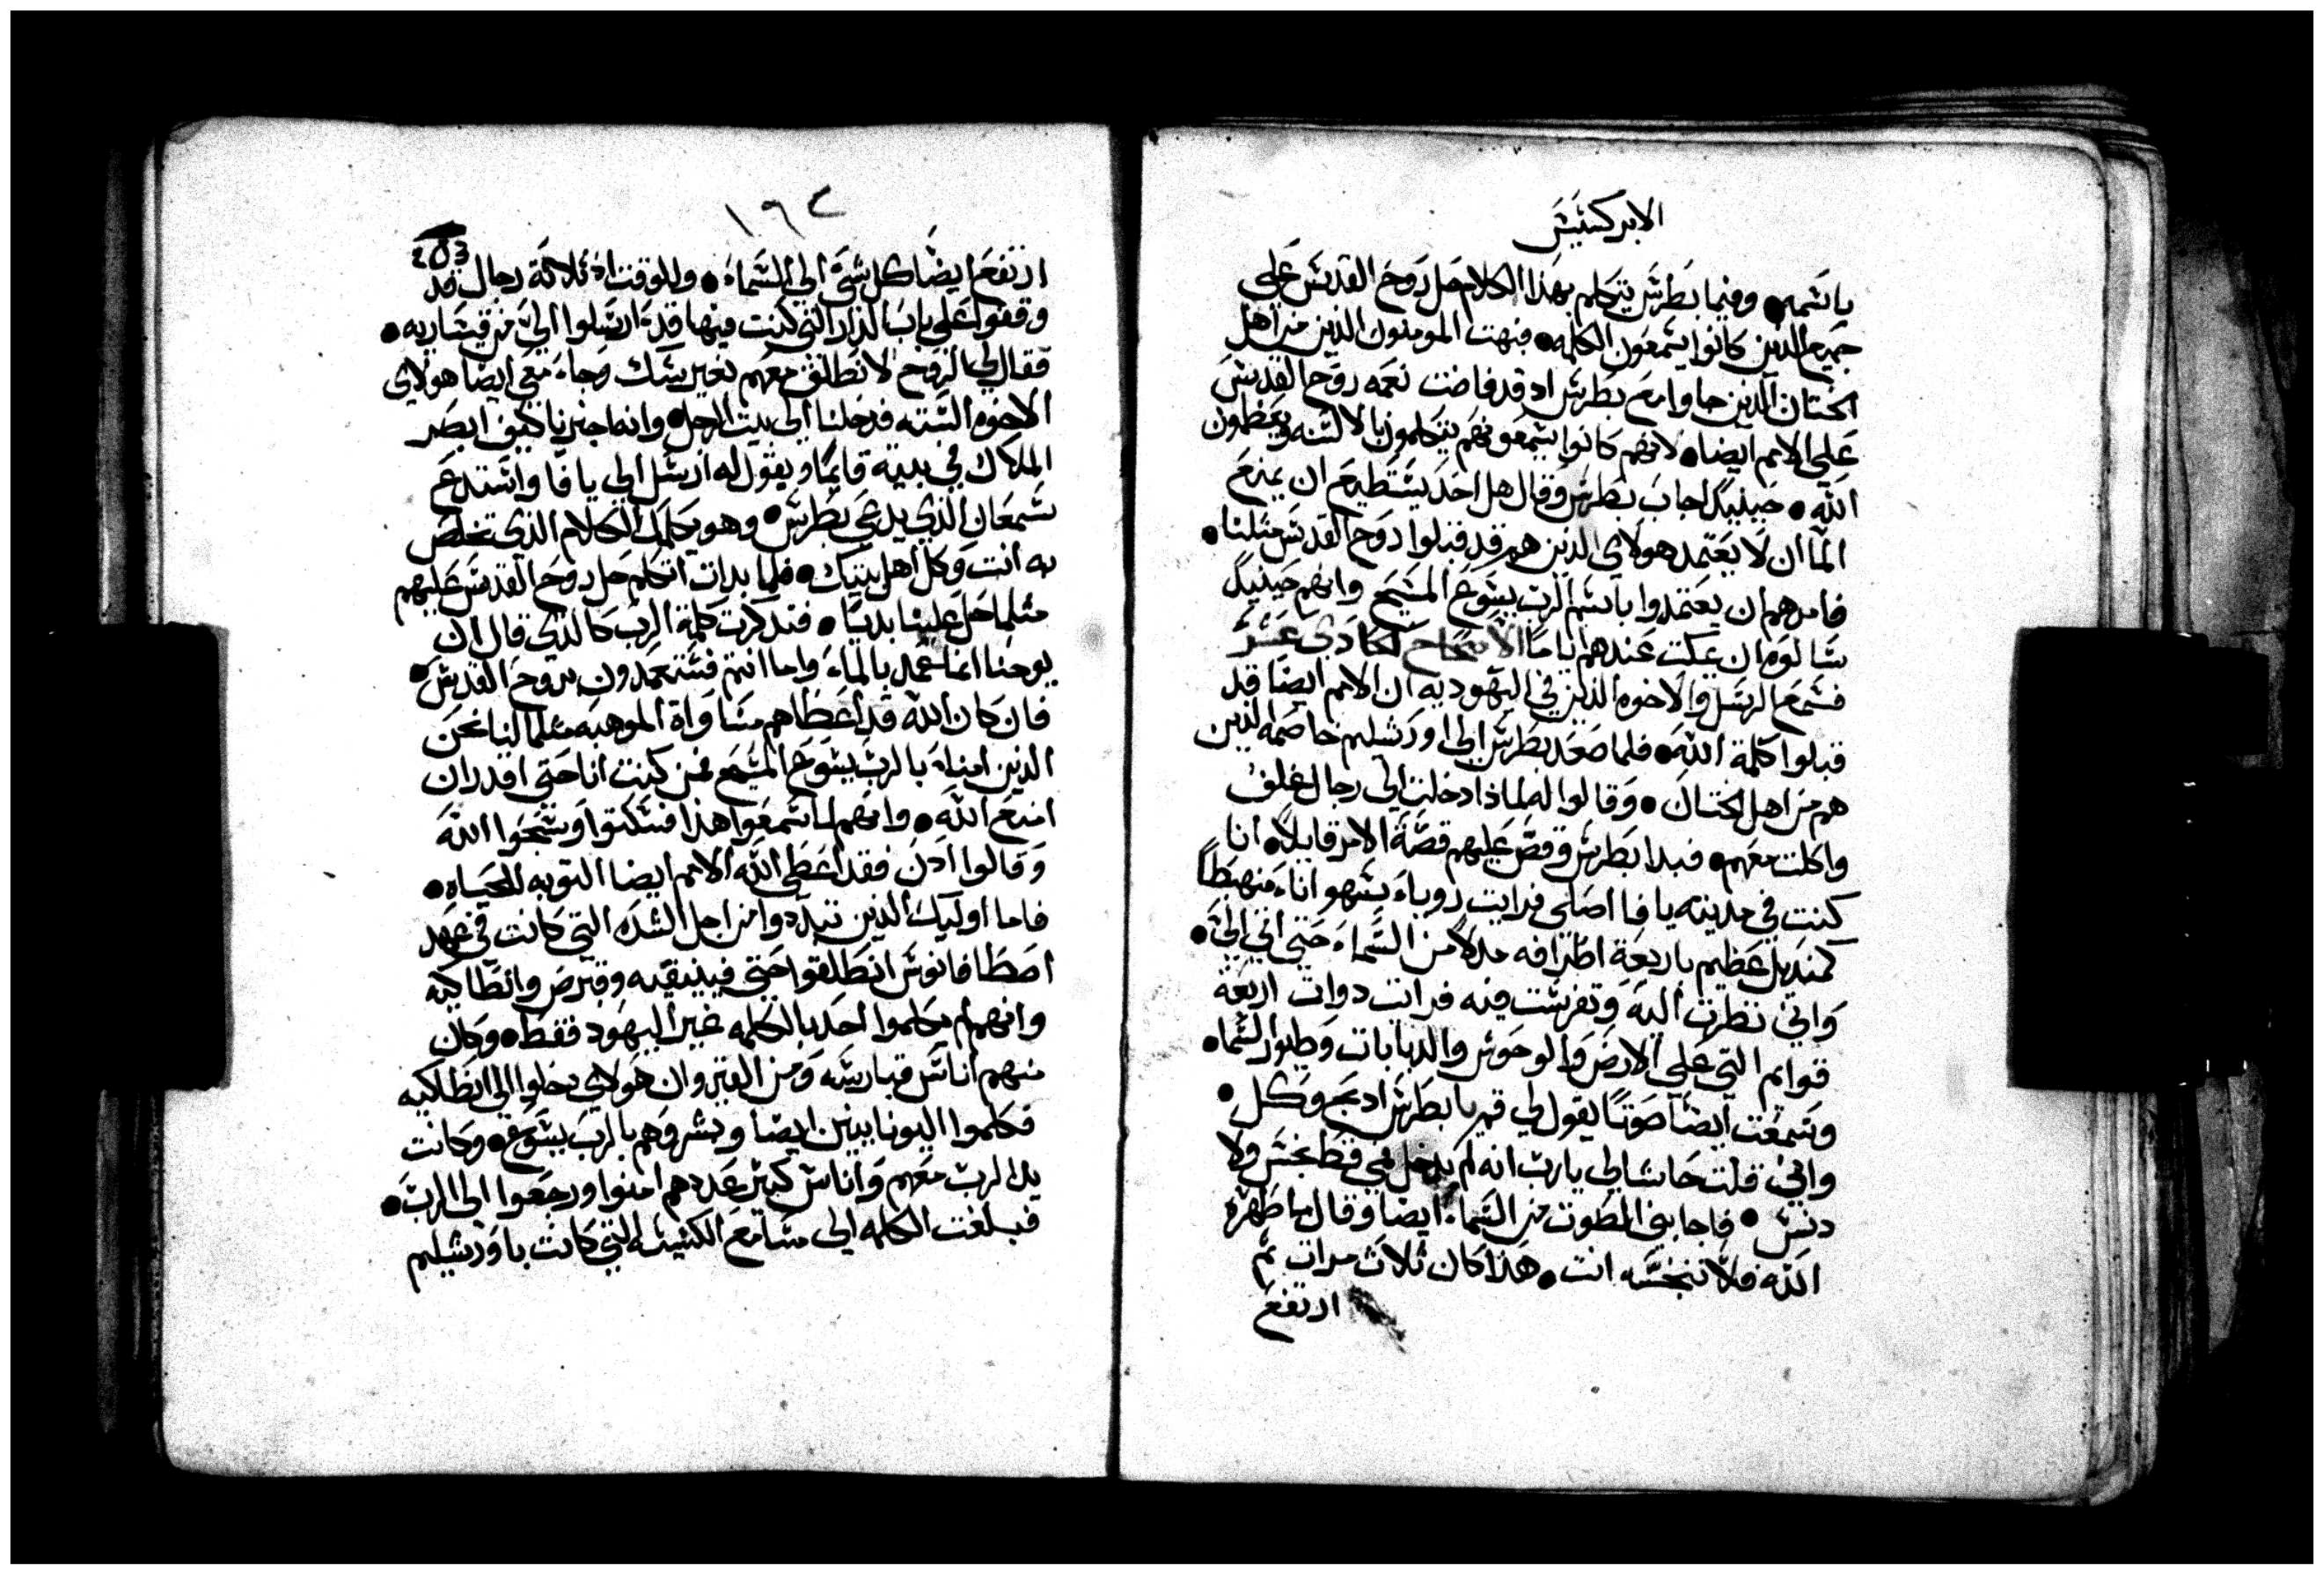 الابركسيس
باسمه • وفيما بطرس يتكلم بهذا الكلام حل روح القدس علي
جميع الذين كانوا يسمعون الكلمه • فبهت المومنون الذين من اهل
الختان الذين جاوا مع بطرس اد قد فاضت نعمه روح القدس
علي الامم ايضا • لانهم كانوا يسمعونهم يتكلمون بالالسنه ويعظمون
الله • حينيد اجاب بطرس وقال هل احد يستطيع ان يمنع
الما ان لا يعتمد هولاي الذين هم قد قبلوا روح القدس مثلنا •
فامرهم ان يعتمدوا باسم الرب يسوع المسيح وانهم حينيد
سالوه ان يمكث عندهم اياما الاصحاح الحادي عشر
فسمع الرسل والاخوه الذين في اليهوديه ان الامم ايضا قد
قبلوا كلمة الله • فلما صعد بطرس الي اورشليم خاصمه الذين
هم من اهل الختان • وقالوا له لماذا دخلت الي رجال غلف
واكلت معهم • فبدا بطرس وقص عليهم قصة الامر قايلا • انا
كنت في مدينه يافا اصلي فرايت روياء بسهو اناء منهبطا
كمنديل عظيم باربعة اطرافه مدلا من السماء حتي اتي الي •
واني نظرت اليه وتفرست فيه فرايت دوات اربعة
قوايم التي علي الارض والوحوش والدبابات وطيور السماء
وسمعت ايضا صوتا يقول لي قم يا بطرس ادبح وكل •
واني قلت حاشا لي يا رب انه لم يدخل في قط نجس ولا
دنس • فاجابني الصوت من السماء ايضا وقال ما طهره
الله فلا تنجسه انت • هذا كان ثلاث مرات ثم
ارتفع
١٩٢
253
ارتفع ايضا كل شي الي السماء • وللوقت اذ ثلاثة رجال قد
وقفوا علي باب الدار التي كنت فيها قد ارسلوا الي من قيساريه •
فقال لي الروح لانطلق معهم بغير شك وجاء معي ايضا هولاي
الاخوه السته فدخلنا الي بيت الرجل • وانه اخبرنا كيف ابصر
الملاك في بيته قايما ويقول له ارسل الي يافا واستدع
سمعان الذي يدعي بطرس • وهو يكلمك الكلام الذي تخلص
به انت وكل اهل بيتك • فلما بدات اتكلم حل روح القدس عليهم
مثلما حل علينا بديا • فتدكرت كلمة الرب كالذي قال ان
يوحنا انما عمد بالماء واما انتم فستعمدون بروح القدس •
فان كان الله قد اعطاهم مساواة الموهبه مثلما لنا نحن
الذين امنا بالرب يسوع المسيح فمن كنت انا حتي اقدر ان
امنع الله • وانهم لما سمعوا هذا فسكتوا وسبحوا الله
وقالوا ادن فقد اعطي الله الامم ايضا التوبه للحياه •
فاما اوليك الذين تبددوا من اجل الشده التي كانت في عهد
اصطافانوس انطلقوا حتي فينيقيه وقبرص وانطاكيه
وانهم لم يكلموا احد بالكلمه غير اليهود فقط • وكان
منهم اناس قبارسه ومن القيروان هولاي دخلوا الي انطاكيه
فكلموا اليونانيين ايضا وبشروهم بالرب يسوع • وكانت
يد الرب معهم واناس كثير عددهم امنوا ورجعوا الي الرب •
فبلغت الكلمه الي مسامع الكنيسه التي كانت باورشليم